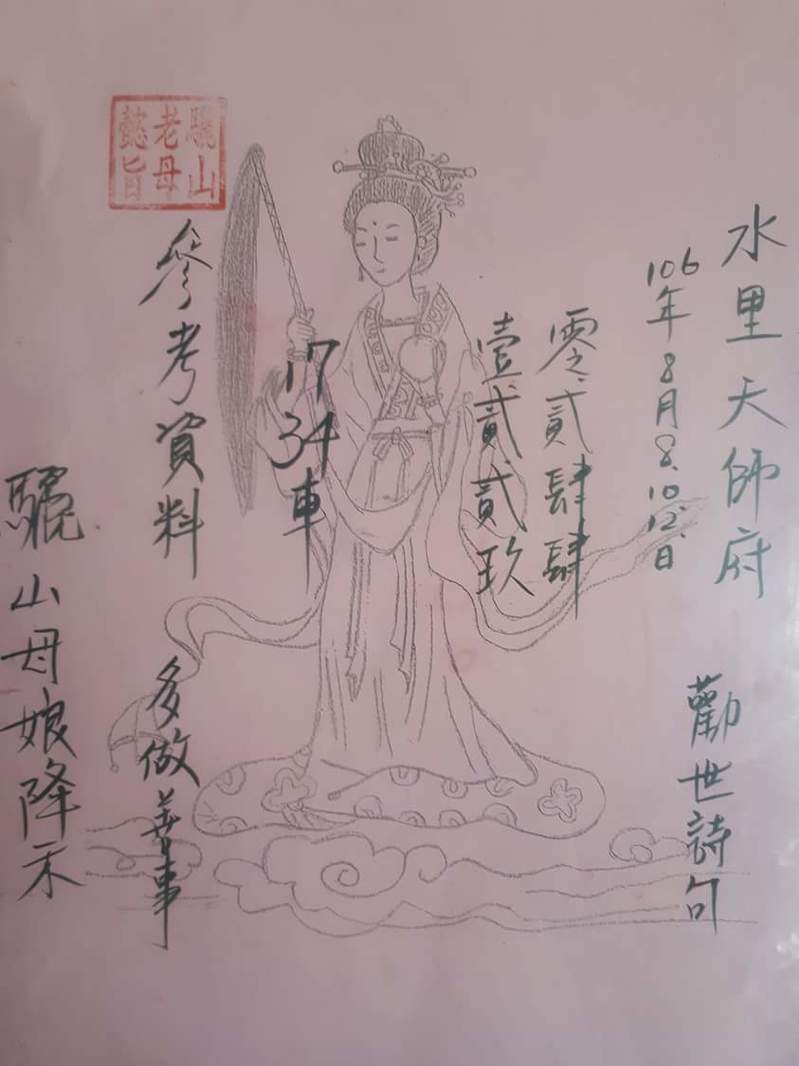 水里天師府
勸世詩句
106年8月8.10.12.日
零貳肆肆
壹貳貳玖
17
34
車
參考資料
多做善事
驪山老母懿旨
驪山母娘降示